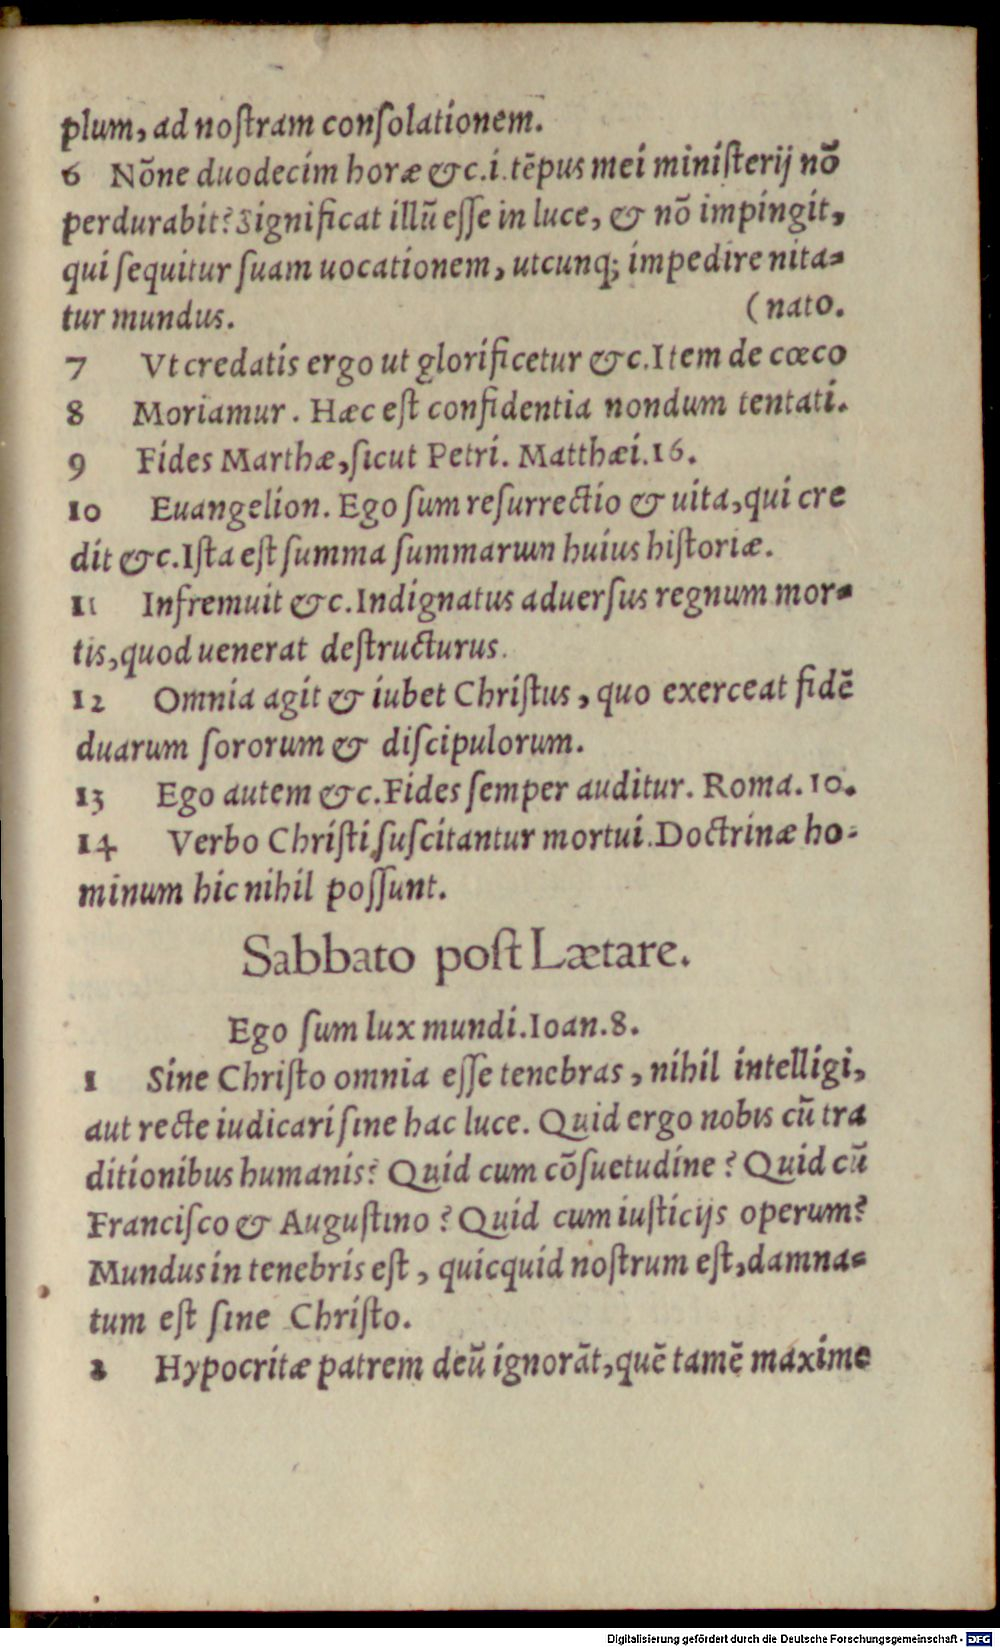 plum, ad noſtram conſolationem.
6 Nõne duodecim horæ &c.i.tẽpus mei miniſterij nõ
perdurabit? Significat illũ eſſe in luce, & nõ impingit,
qui ſequitur ſuam uocationem, utcunq; impedire nita=
tur mundus. (nato.
7 Vt credatis ergo ut glorificetur &c. Item de cœco
8 Moriamur. Hæc eſt confidentia nondum tentati.
9 Fides Marthæ, ſicut Petri. Matthæi. 16.
10 Euangelion. Ego ſum reſurrectio & uita, qui cre
dit &c. Iſta eſt ſumma ſummarum huius hiſtoriæ.
11 Infremuit &c. Indignatus aduerſus regnum mor=
tis, quod uenerat deſtructurus.
12 Omnia agit & iubet Chriſtus, quo exerceat fidẽ
duarum ſororum & diſcipulorum.
13 Ego autem &c. Fides ſemper auditur. Roma. 10.
14 Verbo Chriſti ſuſcitantur mortui. Doctrinæ ho=
minum hic nihil poſſunt.
Sabbato poſt Lætare.
Ego ſum lux mundi. Ioan. 8.
1 Sine Chriſto omnia eſſe tenebras, nihil intelligi,
aut recte iudicari ſine hac luce. Quid ergo nobis cũ tra
ditionibus humanis? Quid cum cõſuetudine? Quid cũ
Franciſco & Auguſtino? Quid cum iuſticijs operum?
Mundus in tenebris eſt, quicquid noſtrum eſt, damna=
tum eſt ſine Chriſto.
2 Hypocritæ patrem deũ ignorãt, quẽ tamẽ maxime
Digitalisierung gefördert durch die Deutsche Forschungsgemeinschaft - DFG